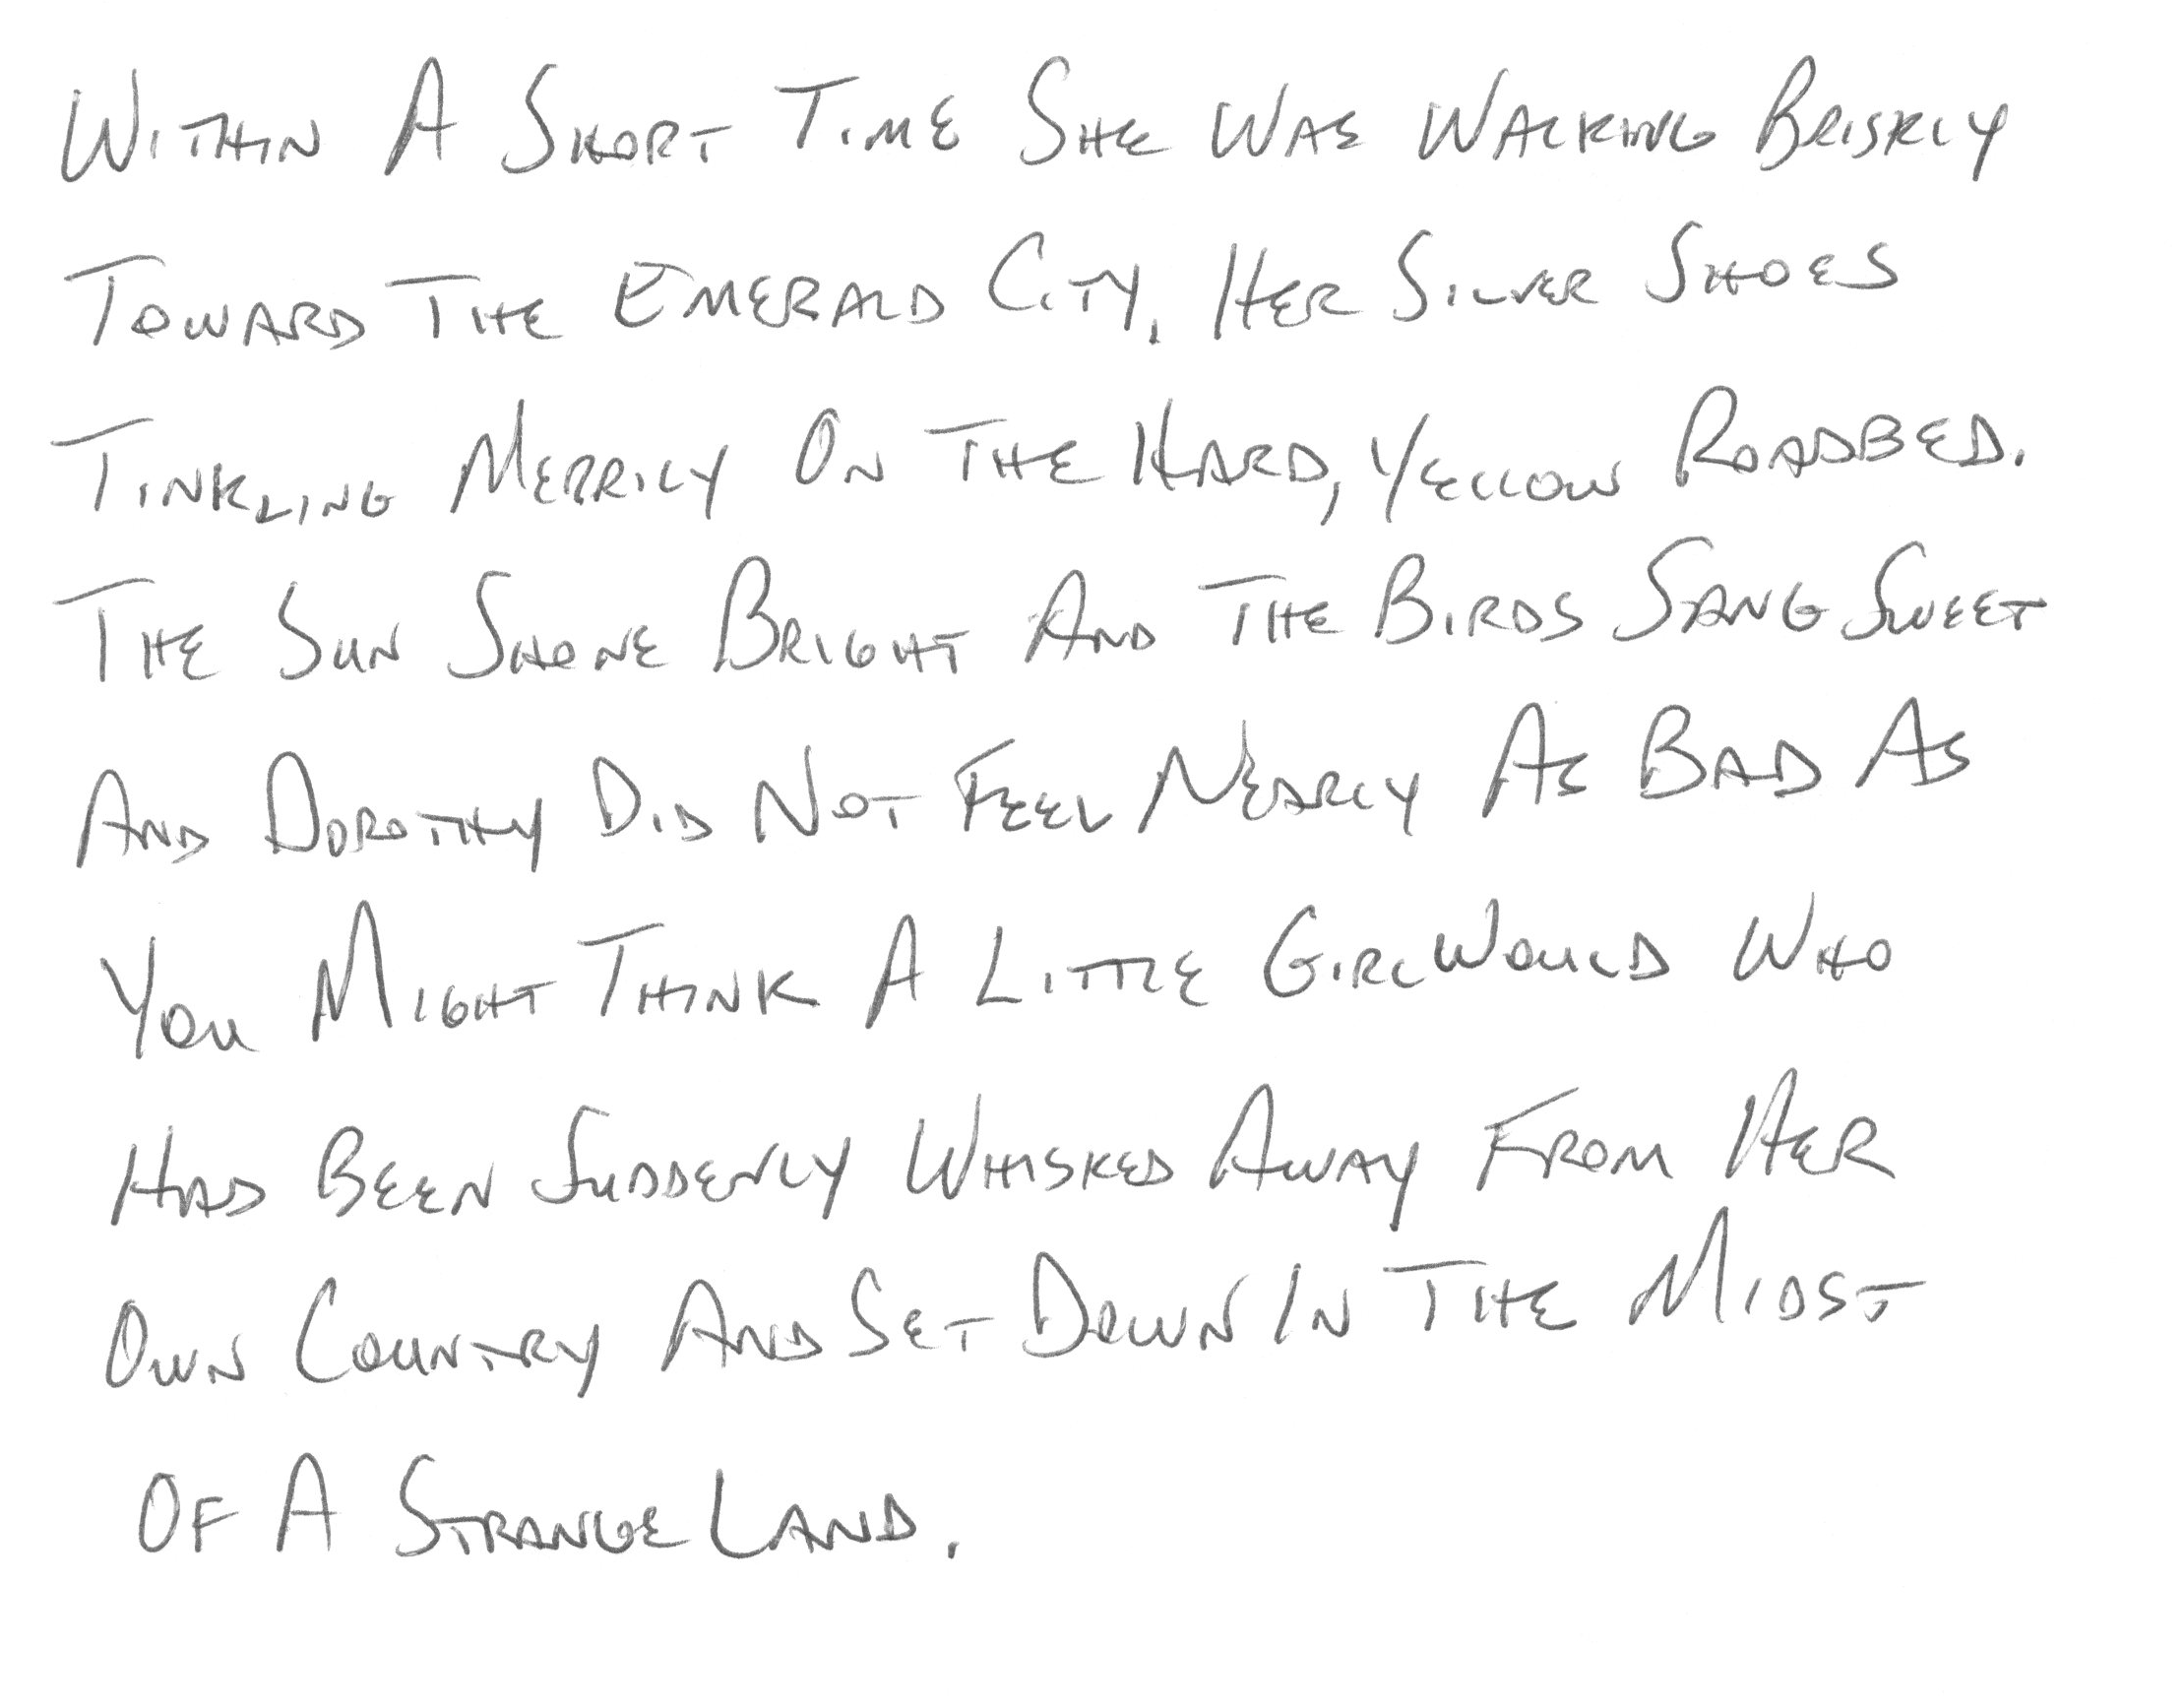 Within A Short Time She Was Walking Briskly
Toward The Emerald City, Her Silver Shoes
Tinkling Merrily On The Hard, Yellow Roadbed.
The Sun Shone Bright And The Birds Sang Sweet
And Dorothy Did Not Feel Nearly As Bad As
You Might Think A Little Girl Would Who
Had Been Suddenly Whisked Away From Her
Own Country And Set Down In The Midst
Of A Strange Land.